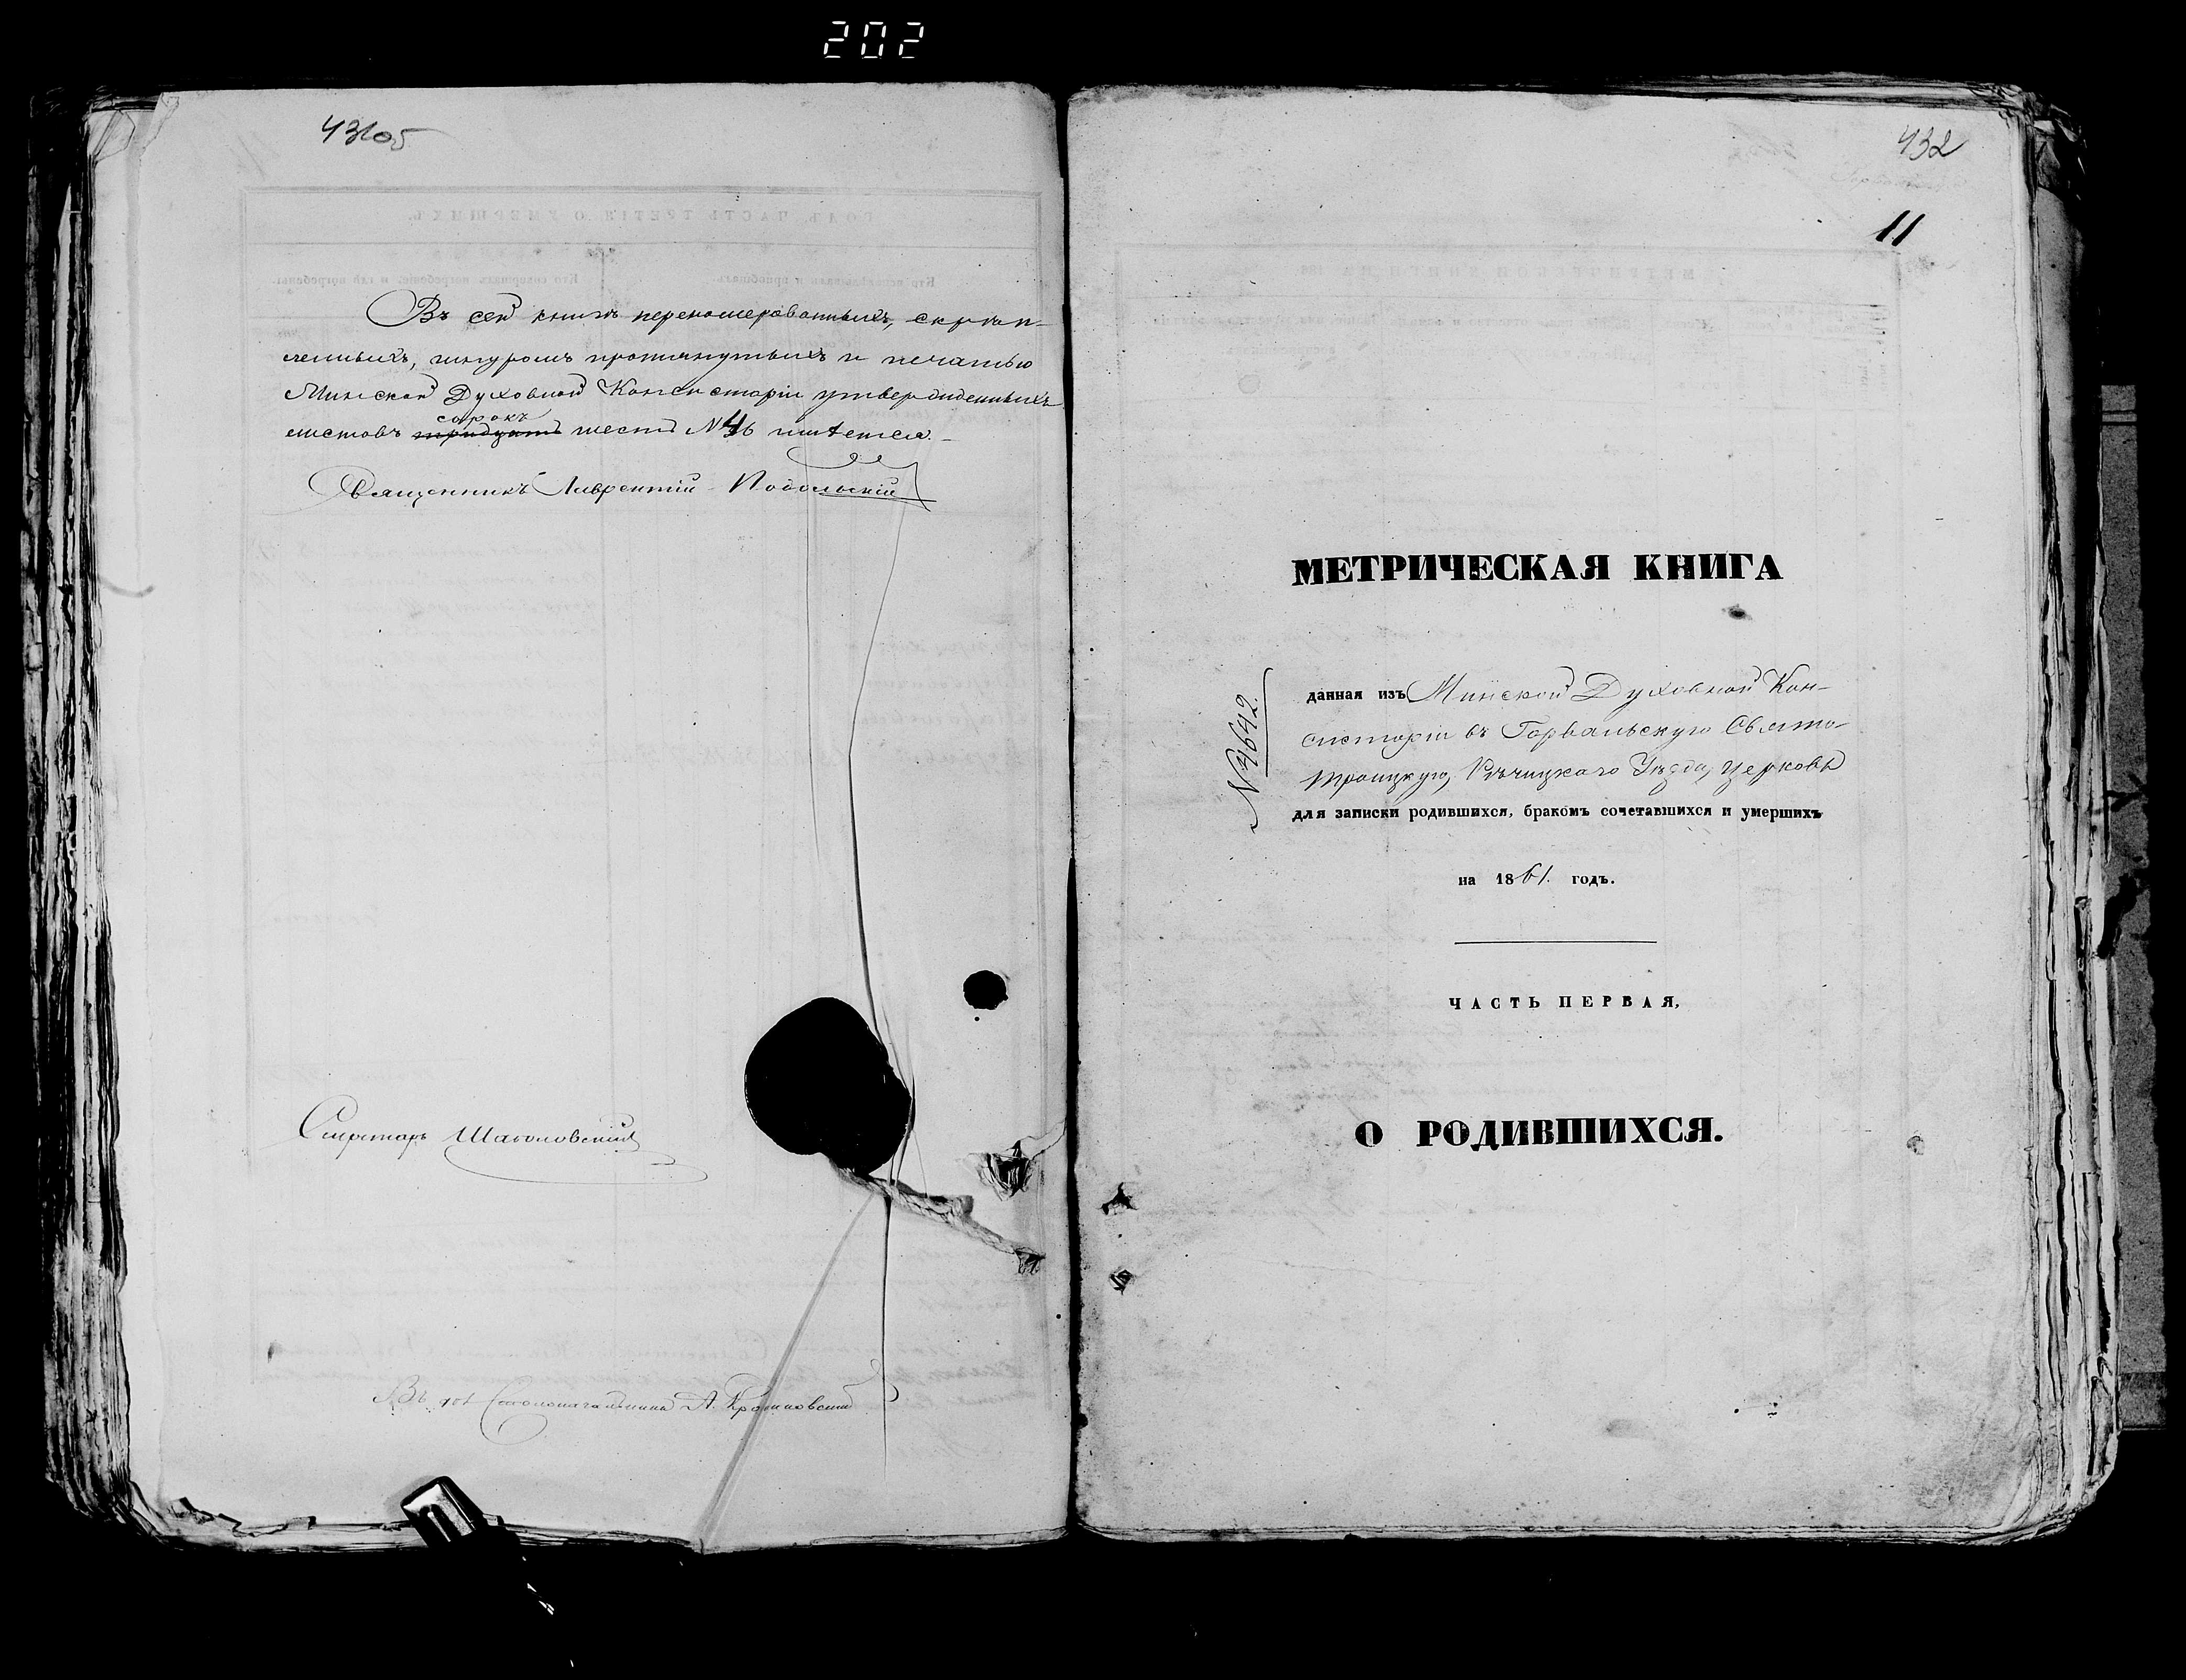 202
431об
Въ сей книгѣ перенумерованныхъ, скрѣп-
ленныхъ, шнуромъ протянутыхъ и печатью
Минской Духовной Консисторіи утвержденныхъ
сорокъ
листовъ тридцать шесть №46 имѣется.
Священникъ Лаврентій Подольскій
Секретарь
Столоначальника А.
432
11
МЕТРИЧЕСКАЯ КНИГА
№4642.
данная изъ Минской Духовной Кон-
систоріи въ Горвальскую Свято-
троицкую, Рѣчицкаго Уѣзда, Церковь
для записки родившихся, бракомъ сочетавшихся и умершихъ
на 1861. годъ.
ЧАСТЬ ПЕРВАЯ,
О РОДИВШИХСЯ.